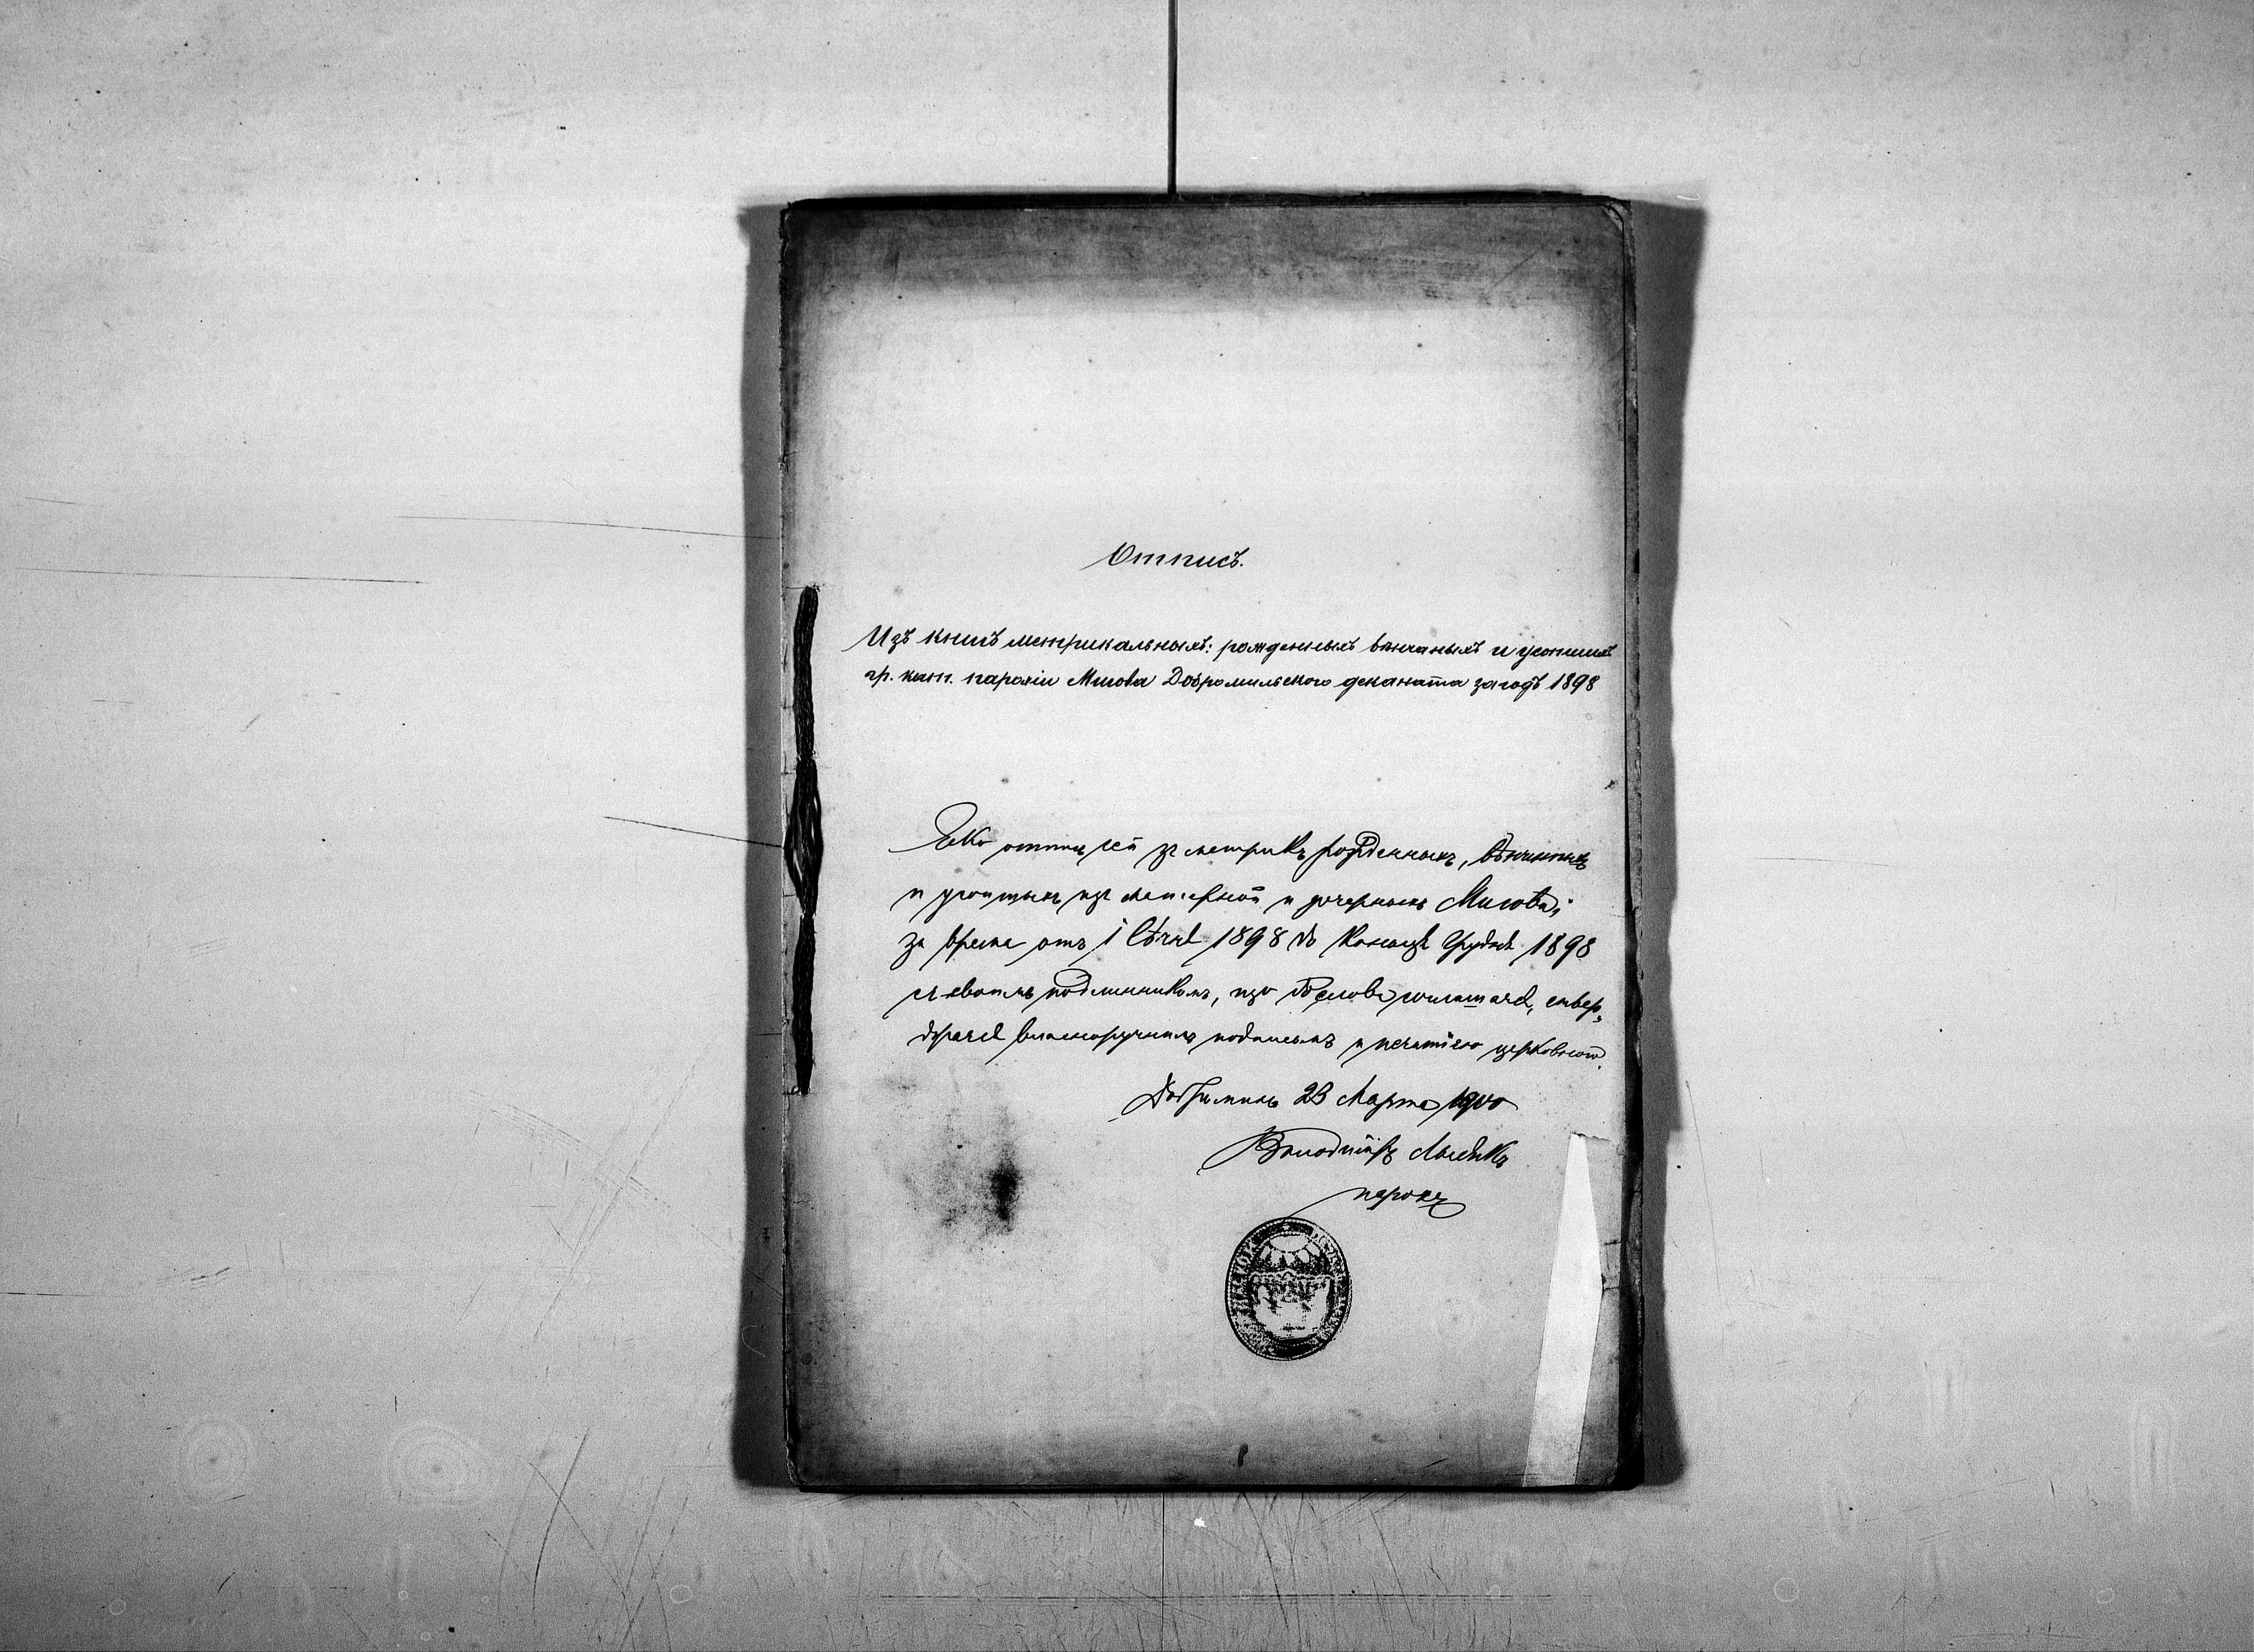 Отписъ.
Изъ книгъ метрикальныхъ: рожденныхъ вѣнчаныхъ и усопшихъ
гр. кат. парохіи Мигова Добромильского деканата за годъ 1898
Яко отпись сей зъ метрикъ рожденныхъ, вѣнчаныхъ
и усопшихъ изъ матерной и дочерныхъ Мигова
за время отъ 1 Сѣчня 1898 до конця Грудня 1898
съ своимъ подлинникомъ, изо дослова согласна, ствер-
джаеся власноручнымъ подписомъ и печатію церковною.
Добромиль 23 Марта 1900
Володиміръ Лысякъ
парохъ